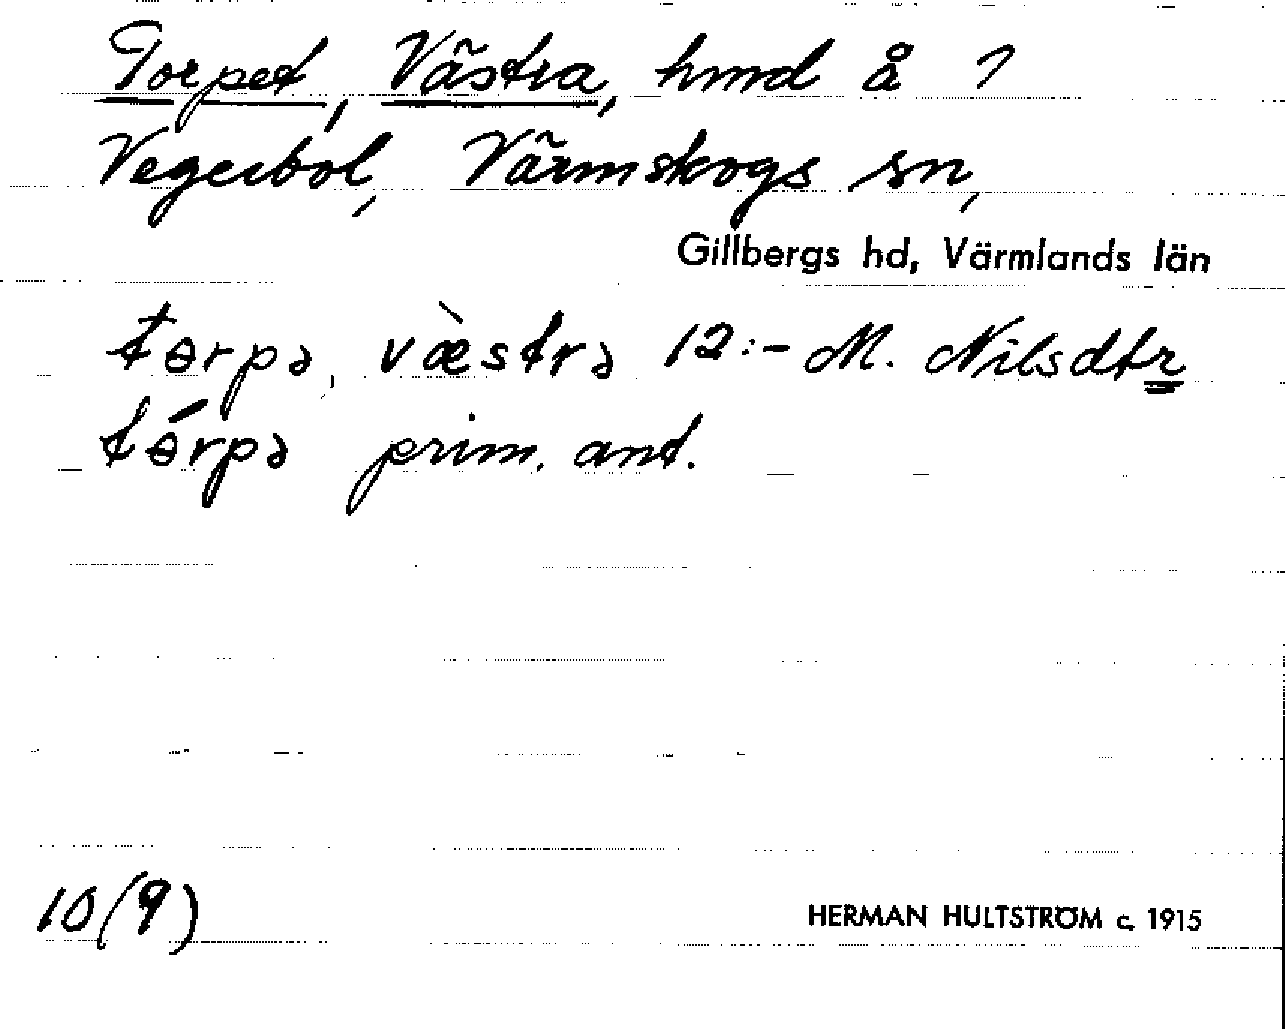 Torpet, Västra, hmd å 1
Vegerbol, Värmskogs sn,
Gillbergs hd, Värmlands län
tɵrpə, væ̀strə 12:- M. Nilsdtr
tɵ́rpə prim. ant.
10(9)
HERMAN HULTSTRÖM c. 1915